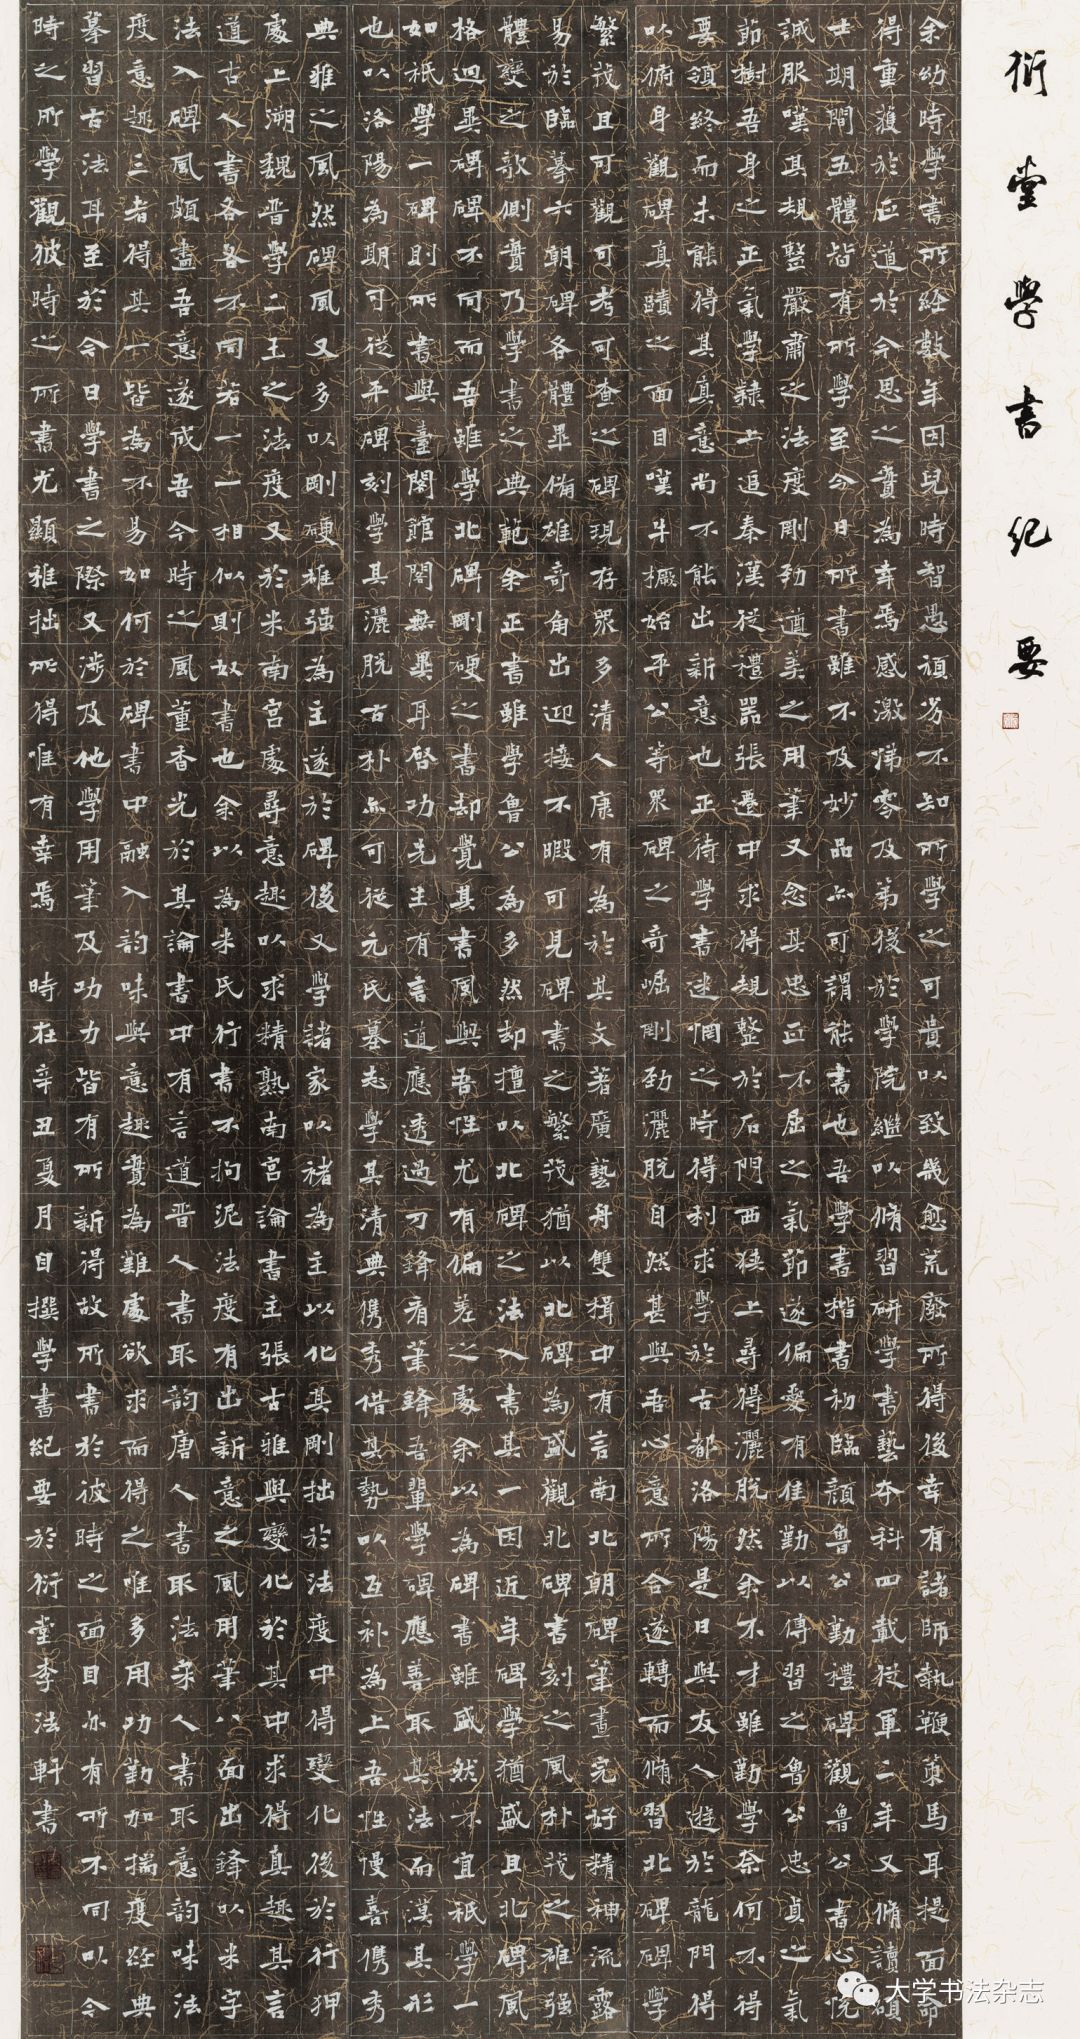 衍堂學書紀要
余幼時學書所經數年因兒時智愚頑劣不知所學之可貴以致幾愈荒廢所得後幸有諸師執鞭策馬耳提面命
得重蹤於正道於今思之實為幸焉感激涕零及第後於學院繼以脩習研學書藝本科四載從軍二年又脩讀碩
士期間五體皆有所學至今日所書雖不及妙品亦可謂能書也吾學書楷書初臨顏魯公勤禮碑觀魯公書心院
誠服嘆其規整嚴肅之法度剛勁遒美之用筆又念其忠正不屈之氣節遂偏愛有佳勤以傳習之魯公忠貞之氣
節樹吾身之正氣學隸上追秦漢從禮器張遷中求得規整於石門西狹上尋得灑脫然余不才雖勤學奈何不得
要領終而未能得其真意尚不能出新意也正待學書迷惘之時得利求學於古都洛陽是日與友人遊於龍門得
以俯身觀碑真蹟之面目嘆牛橛始平公等眾碑之奇崛剛勁灑脫自然甚與吾心意所合遂轉而脩習北碑碑學
繁茂且可觀可考可查之碑現存眾多清人康有為於其文著廣藝舟雙楫中有言南北朝碑筆畫完好精神流露
易於臨摹六朝碑各體畢備雄奇角出迎接不暇可見碑書之繁茂猶以北碑為盛觀北碑書刻之風朴茂之雄強
體變之欹側實乃學書之典範余正書雖學魯公為多然却擅以北碑之法入書其一因近年碑學猶盛且北碑風
格迥異碑碑不同而吾雖學北碑剛硬之書却覺其書風與吾性尤有偏差之處余以為碑書雖盛然不宜祇學一
如祇學一碑則所書與臺閣館閣無異耳啓功先生有言道應透過刀鋒看筆鋒吾輩學碑應善取其法而漢其形
也以洛陽為期可從平碑刻學其灑脫古朴亦可從元氏墓志學其清典儁秀借其勢以互補為上吾性慢喜儁秀
典雅之風然碑風又多以剛硬雄強為主遂於碑後又學諸家以褚為主以化其剛拙於法度中得變化後於行狎
處上溯魏晉學二王之法度又於米南宮處尋意趣以求精熟南宮論書主張古雅與變化於其中求得真趣其言
道古人書各各不同若一一相似則奴書也余以為米氏行書不拘泥法度有出新意之風用筆八面出鋒以米字
法入碑風頗盡吾意遂成吾今時之風董香光於其論書中有言道晉人書取韵唐人書取法宋人書取意韵味法
度意趣三者得其一皆為不易如何於碑書中融入韵味與意趣實為難處欲求而得之唯多用功勤加揣度經典
摹習古法耳至於今日學書之際又涉及他學用筆及功力皆有所新得故所書於彼時之面目亦有所不同以今
時之所學觀彼時之所書尤顯稚拙所得唯有幸焉 時在辛丑夏月自撰學書紀要於衍堂李法軒書
大学书法杂志